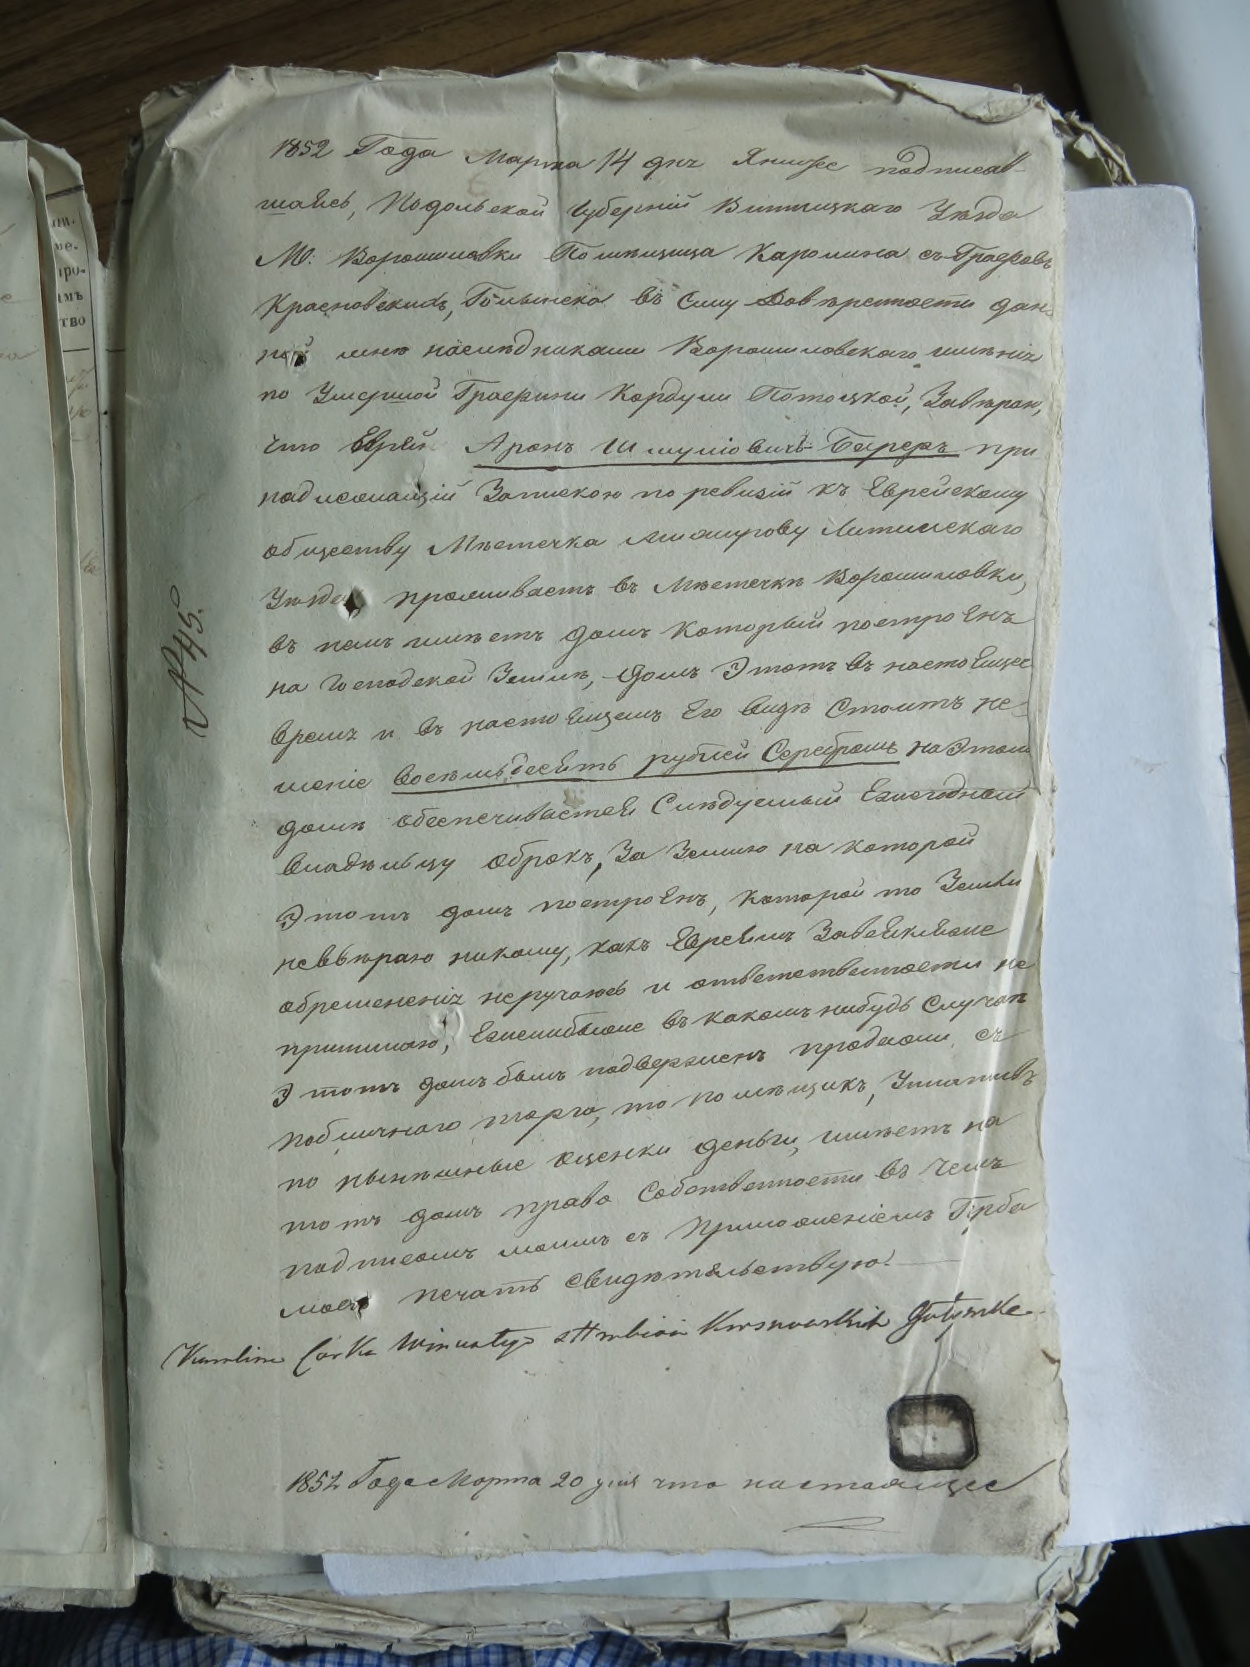 1852 Года Марта 14 дня Я нижеподписав-
шаяся, Подольской Губерніи Винницкаго Уезда
М: Ворошиловки Помещица Каролина съ Графовъ
Красновскихъ, Голынска въ Силу Доверенности дан
ной мне наследниками Ворошиловскаго именія
по Умершой Графини Кордули Потоцкой, Заверяю,
что Еврей Аронъ Шмуліовичъ Береръ при
надлежащій Запискою по ревизіи къ Еврейскому
обществу Местечка Литинскаго
Уезда, проживаетъ въ Местечке Ворошиловки,
въ немъ имеетъ домъ который построенъ
на Господской Земле, домъ Этотъ въ настоящее
время и въ настоящемъ Его виде Стоитъ не-
менее восемьдесятъ рублей Серебромъ на Этом
доме обеспечивается Следуемый Ежегодный
Владельцу оброкъ, За Землю на которой
Этотъ домъ построенъ, которой то Земли
невверяю никому, какъ Евреямъ За
обремененія неручаюсь и ответственности не
принимаю, Ежелибыже въ какомъ нибудь Случаи
Этотъ домъ былъ подверженъ продажи съ
Публичнаго торга, то помещикъ, Уплативъ
по нынешные оценки деньги, имеетъ на
тотъ домъ право Собственности въ чемъ
подписомъ моимъ съ Приложеніемъ Герба
моего печать свидетельствую.
Karolina Corka Wincentego Hrabiow Krasnowskich Golynska
1852 Года Марта 20 дня что настоящее
№ 45.